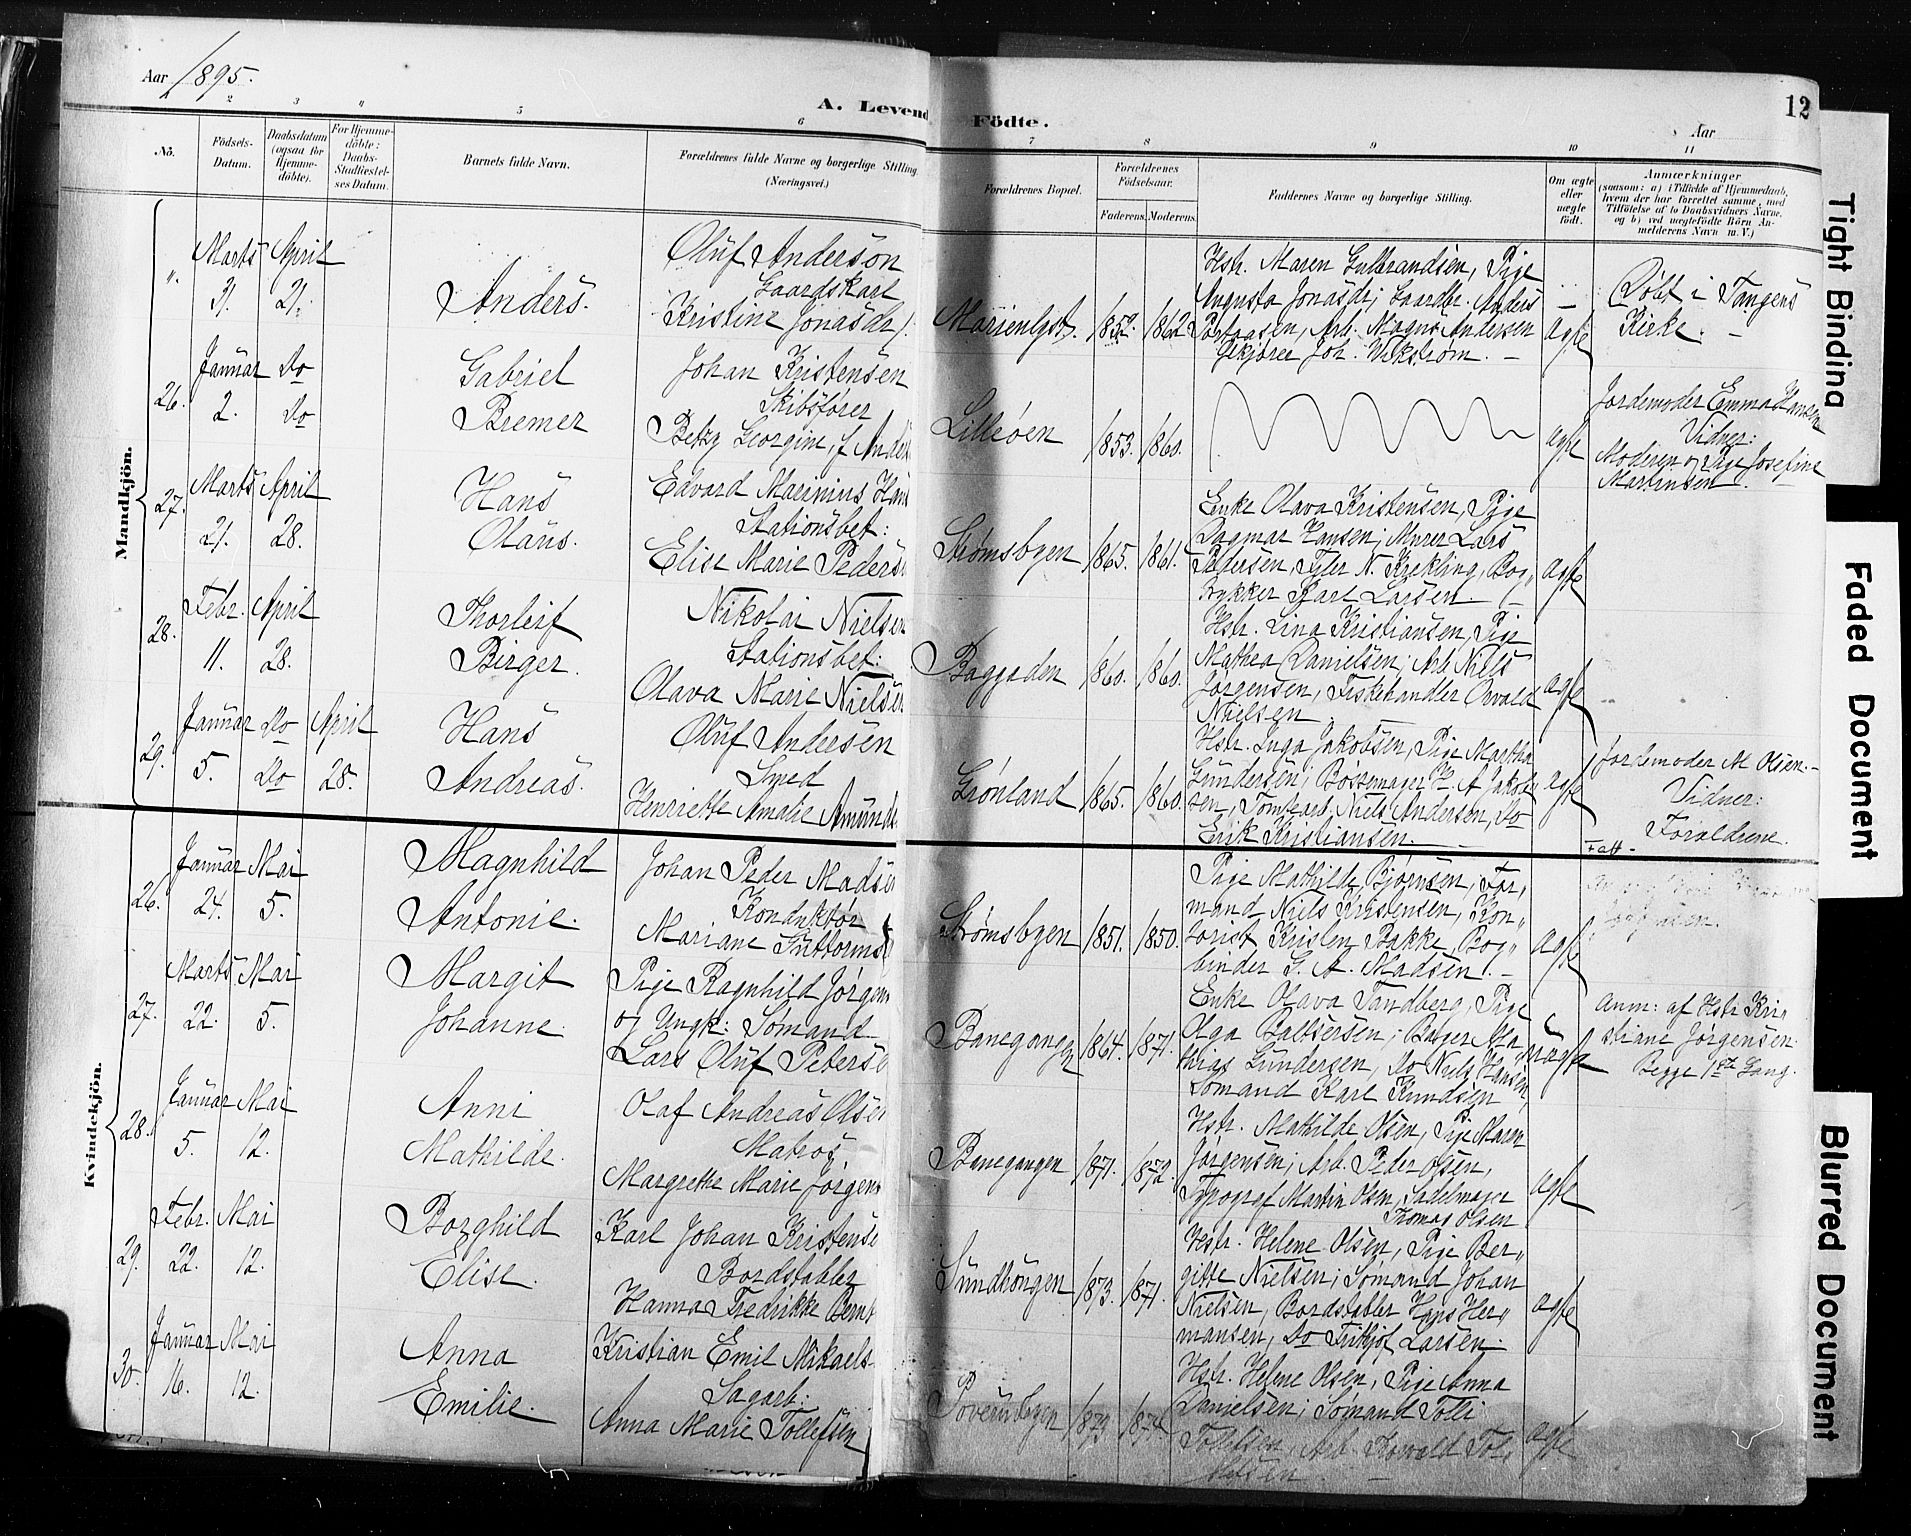 Aar 1895.
A. Levend Födte.
12
Aar
2 3 " 5 6 7 8 9 10 11
No.
Födsels-Datum.
Daabsdatum (ogsaa for Hjemme-döbte).
For Hjemme-döbte: Daabs-Stadfæstel-ses Datum.
Barnets fulde Navn.
Forældrenes fulde Navne og borgerlige Stilling (Næringsvei.)
Forældrenes Bopæl.
Forældrenes Födselsaar.
Faderens. Moderens.
Faddernes Navne og borgerlige Stilling.
Om ægte eller uægte födt.
Anmærkninger
(saasom: a) i Tilfælde af Hjemmedaab, hvem der har forrettet samme, med Tilföielse af to Daabsvidners Navne, og b) ved uægtefödte Börn An-melderens Navn m. V.)
Mandkjön.
".
Marts April
3. 21.
Anders.
Oluf Anderson
Gaardskarl
Kristine Jonasdr.
1852. 1862
Hstr. Maren Gulbrandsen, Pige
Augusta Jonasdr; Gaardbr. Anders
Arb. Magnus Andersen
Joh. Vikström. —
ægte
Döbt i Tangens
Kirke. —
26.
Januar Do
2. Do
Gabriel
Bremer
Johan Kristensen
Skibsfører
Betzy Georgine, f. Ander
Lilleøen
1853. 1860.
ægte
Jordemoder Emma Hansen
Vidner:
Moderen og Pige Josefine
Martinsen.
27.
Marts April
21. 28.
Hans
Olaus.
Edvard Marinius Hans
Stationsbet:
Elise Marie Peders
Strømsbyen
1865. 1861.
Enke Olava Kristensen, Pige
Dagmar Hansen; Murer Lars
Pedersen, N. Krekling, Bog"
trykker Karl Larsen. —
ægte
28.
Febr. April
11. 28.
Thorleif
Birger.
Nikolai Nielsen
Stationsbet:
Olava Marie Nielsen
Baggaden
1860. 1860.
Hstr. Lina Kristiansen, Pige
Mathea Danielsen; Arb. Niels
Jørgensen, Fiskehandler Osvald
Nielsen
ægte
29.
Januar Do April
5. Do 28.
Hans
Andreas.
Oluf Andersen
Smed
Henriette Amalie Amunds
Grønland
1865. 1860.
Hstr. Inga Jakobsen, Pige Martha
Gundersen; Bøssemager A. Jakob"
sen, Tomtearb. Niels Anderson, Do
Erik Kristiansen.
ægte
Jordemoder M Olsen. —
Vidner:
Forældrene.
Kvindekjön.
26.
Januar Mai
24. 5.
Magnhild
Antonie.
Johan Peder Madse
Konduktør
Mariane Guttorms
Strømsbyen
1851. 1850.
Pige Mathilde Bjørnsen; For"
mand Niels Kristensen, Kon"
torist Kristen Bakke, Bog"
binder G. A. Madsen. —
ægte
27.
Marts Mai
22. 5.
Margit
Johanne.
Pige Ragnhild Jørgen
og Ungk: Sømand
Lars Oluf Peterse
Banegangen
1864. 1871.
Enke Olava Tandberg, Pige
Olga Baltsersen; Bager Ma"
thias Gundersen, Do Niels Hansen,
Sømand Karl Knudsen
uægte
Anm: af Hstr Kri"
stiane Jørgensen.
Begge 1ste Gang.
28.
Januar Mai
5. 12.
Anni
Mathilde.
Olaf Andreas Olsen
Matros
Margrethe Marie Jørgens
Banegangen
1871. 1872.
Hstr. Mathilde Olsen, Pige Maren
Jørgensen; Arb. Peder Olsen,
Typograf Martin Olsen, Sadelmager
Thomas Olsen
ægte
29.
Febr. Mai
22. 12.
Borghild
Elise.
Karl Johan Kristense
Bordstabler
Hanna Fredrikke Bernt
Sundhöugen
1873. 1871.
Hstr. Helene Olsen, Pige Ber"
gitte Nielsen; Sømand Johan
Nielsen, Bordstabler Hans Her"
mansen, Do Frithjof Larsen.
ægte
30.
Januar Mai
16. 12.
Anna
Emilie.
Kristian Emil Mikaels
Sagarb.
Anna Marie Tollefsen
1873 1874
Hstr. Helene Olsen, Pige Anna
Danielsen; Sømand Tolli
Tollefsen, Arb. Tol"
lefsen —
ægte
Tight Binding
Faded Document
Blurred Document